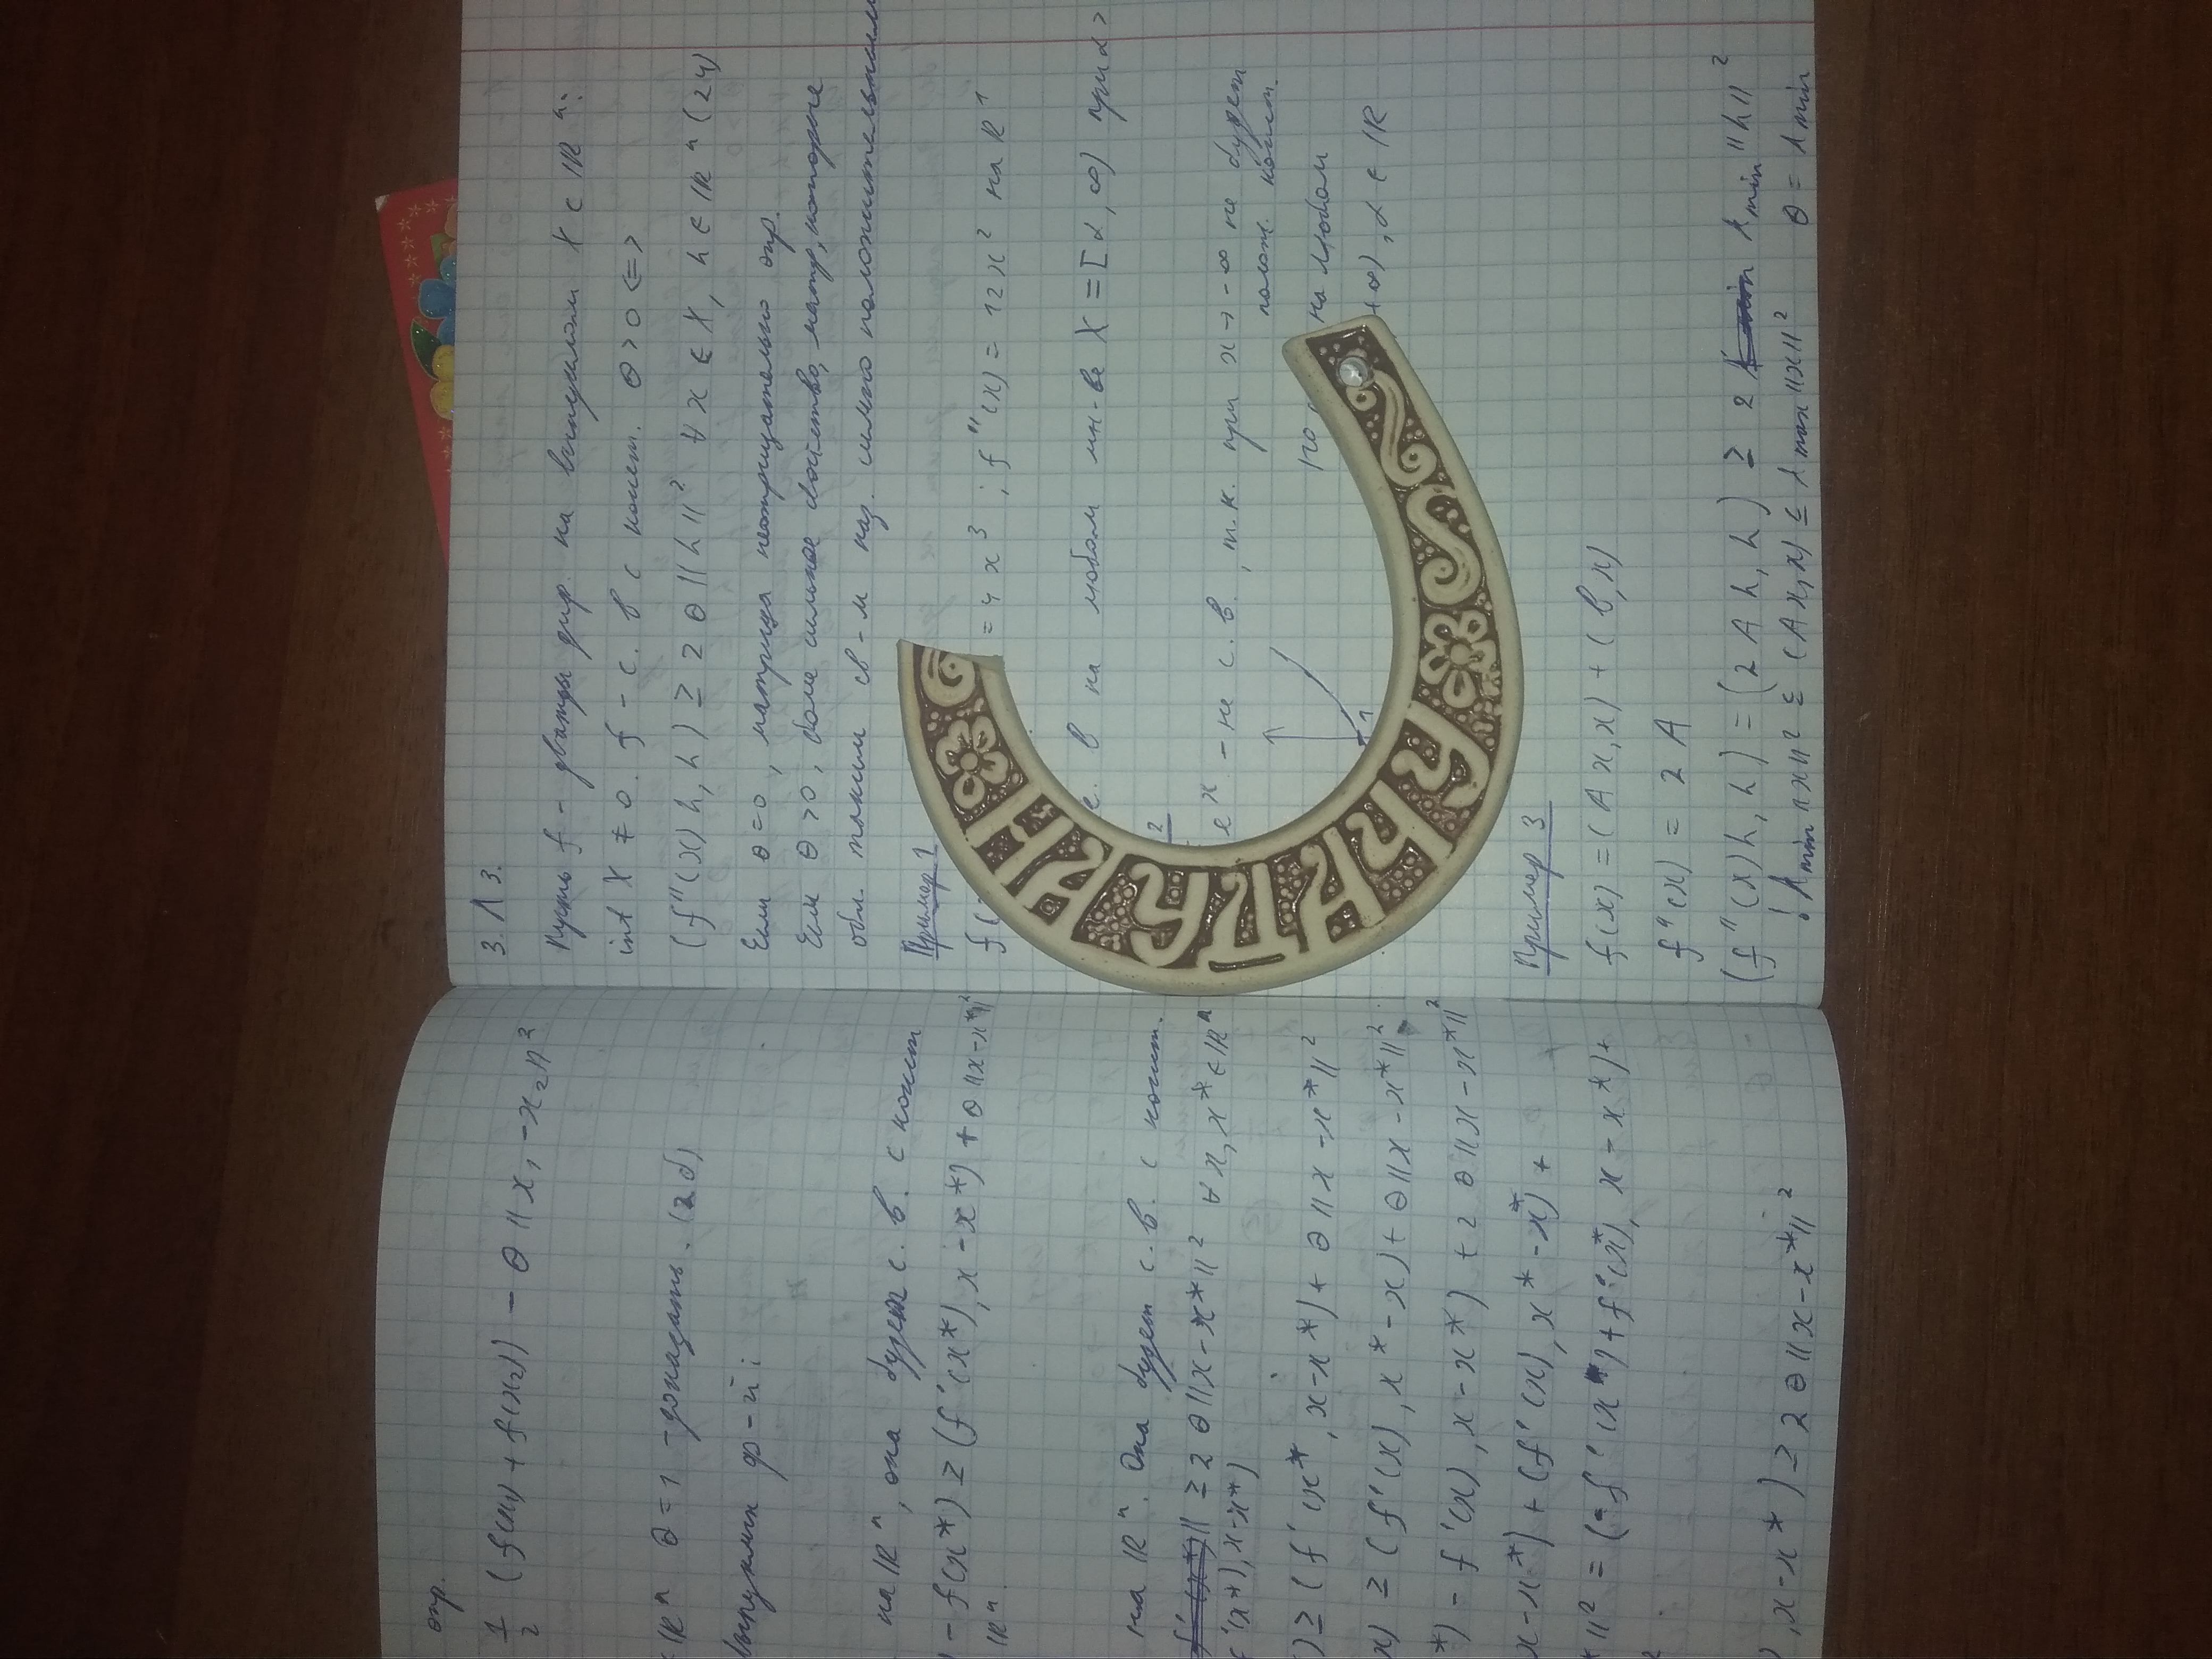 опр.
1/2 (f(x₁) + f(x₂)) - θ ||x₁ - x₂||²
ℝⁿ θ = 1 - доказать. (2д)
выпуклых ф-й:
на ℝⁿ, она будет с. в. с конст
- f(x*) ≥ (f'(x*), x - x*) + θ ||x - x*||²
ℝⁿ.
на ℝⁿ. Она будет с. в. с конст.
≥ 2 θ ||x - x*||² ∀ x, x* ∈ ℝⁿ
f'(x*), x - x*)
) ≥ (f'(x*, x - x*) + θ ||x - x*||²
x) ≥ (f'(x), x* - x) + θ ||x - x*||².
*) - f'(x), x - x*) + 2 θ ||x - x*||²
x - x*) + (f'(x), x* - x*) +
*||² = (-f'(x*) + f'(x*), x - x*) +
), x - x*) ≥ 2 θ ||x - x*||²
3. Л 3.
Пусть f - дважды диф. на выпуклом X ⊂ ℝⁿ.
int X ≠ 0. f - с. в с конст. θ > 0 <=>
(f''(x) h, h) ≥ 2 θ ||h||² ∀ x ∈ X, h ∈ ℝⁿ (24)
Если θ = 0, матрица неотрицательно опр.
Если θ > 0, более сильное свойство, матр, которые
обл. таким св-м наз. сильно положительными
Пример 1
f( = 4x³; f''(x) = 12x² на ℝ¹
с. в на любом мн-ве X = [α, ∞) при α >
2
eˣ - не с. в., т.к. при x → -∞ не будет
полож. конст.
но на любом
+∞), α ∈ ℝ
1
НА УДАЧУ
Пример 3
f(x) = (Ax, x) + (b, x)
f''(x) = 2A
(f''(x) h, h) = (2Ah, h) ≥ 2 λmin ||h||²
! λmin ||x||² ≤ (Ax, x) ≤ λmax ||x||² θ = λmin